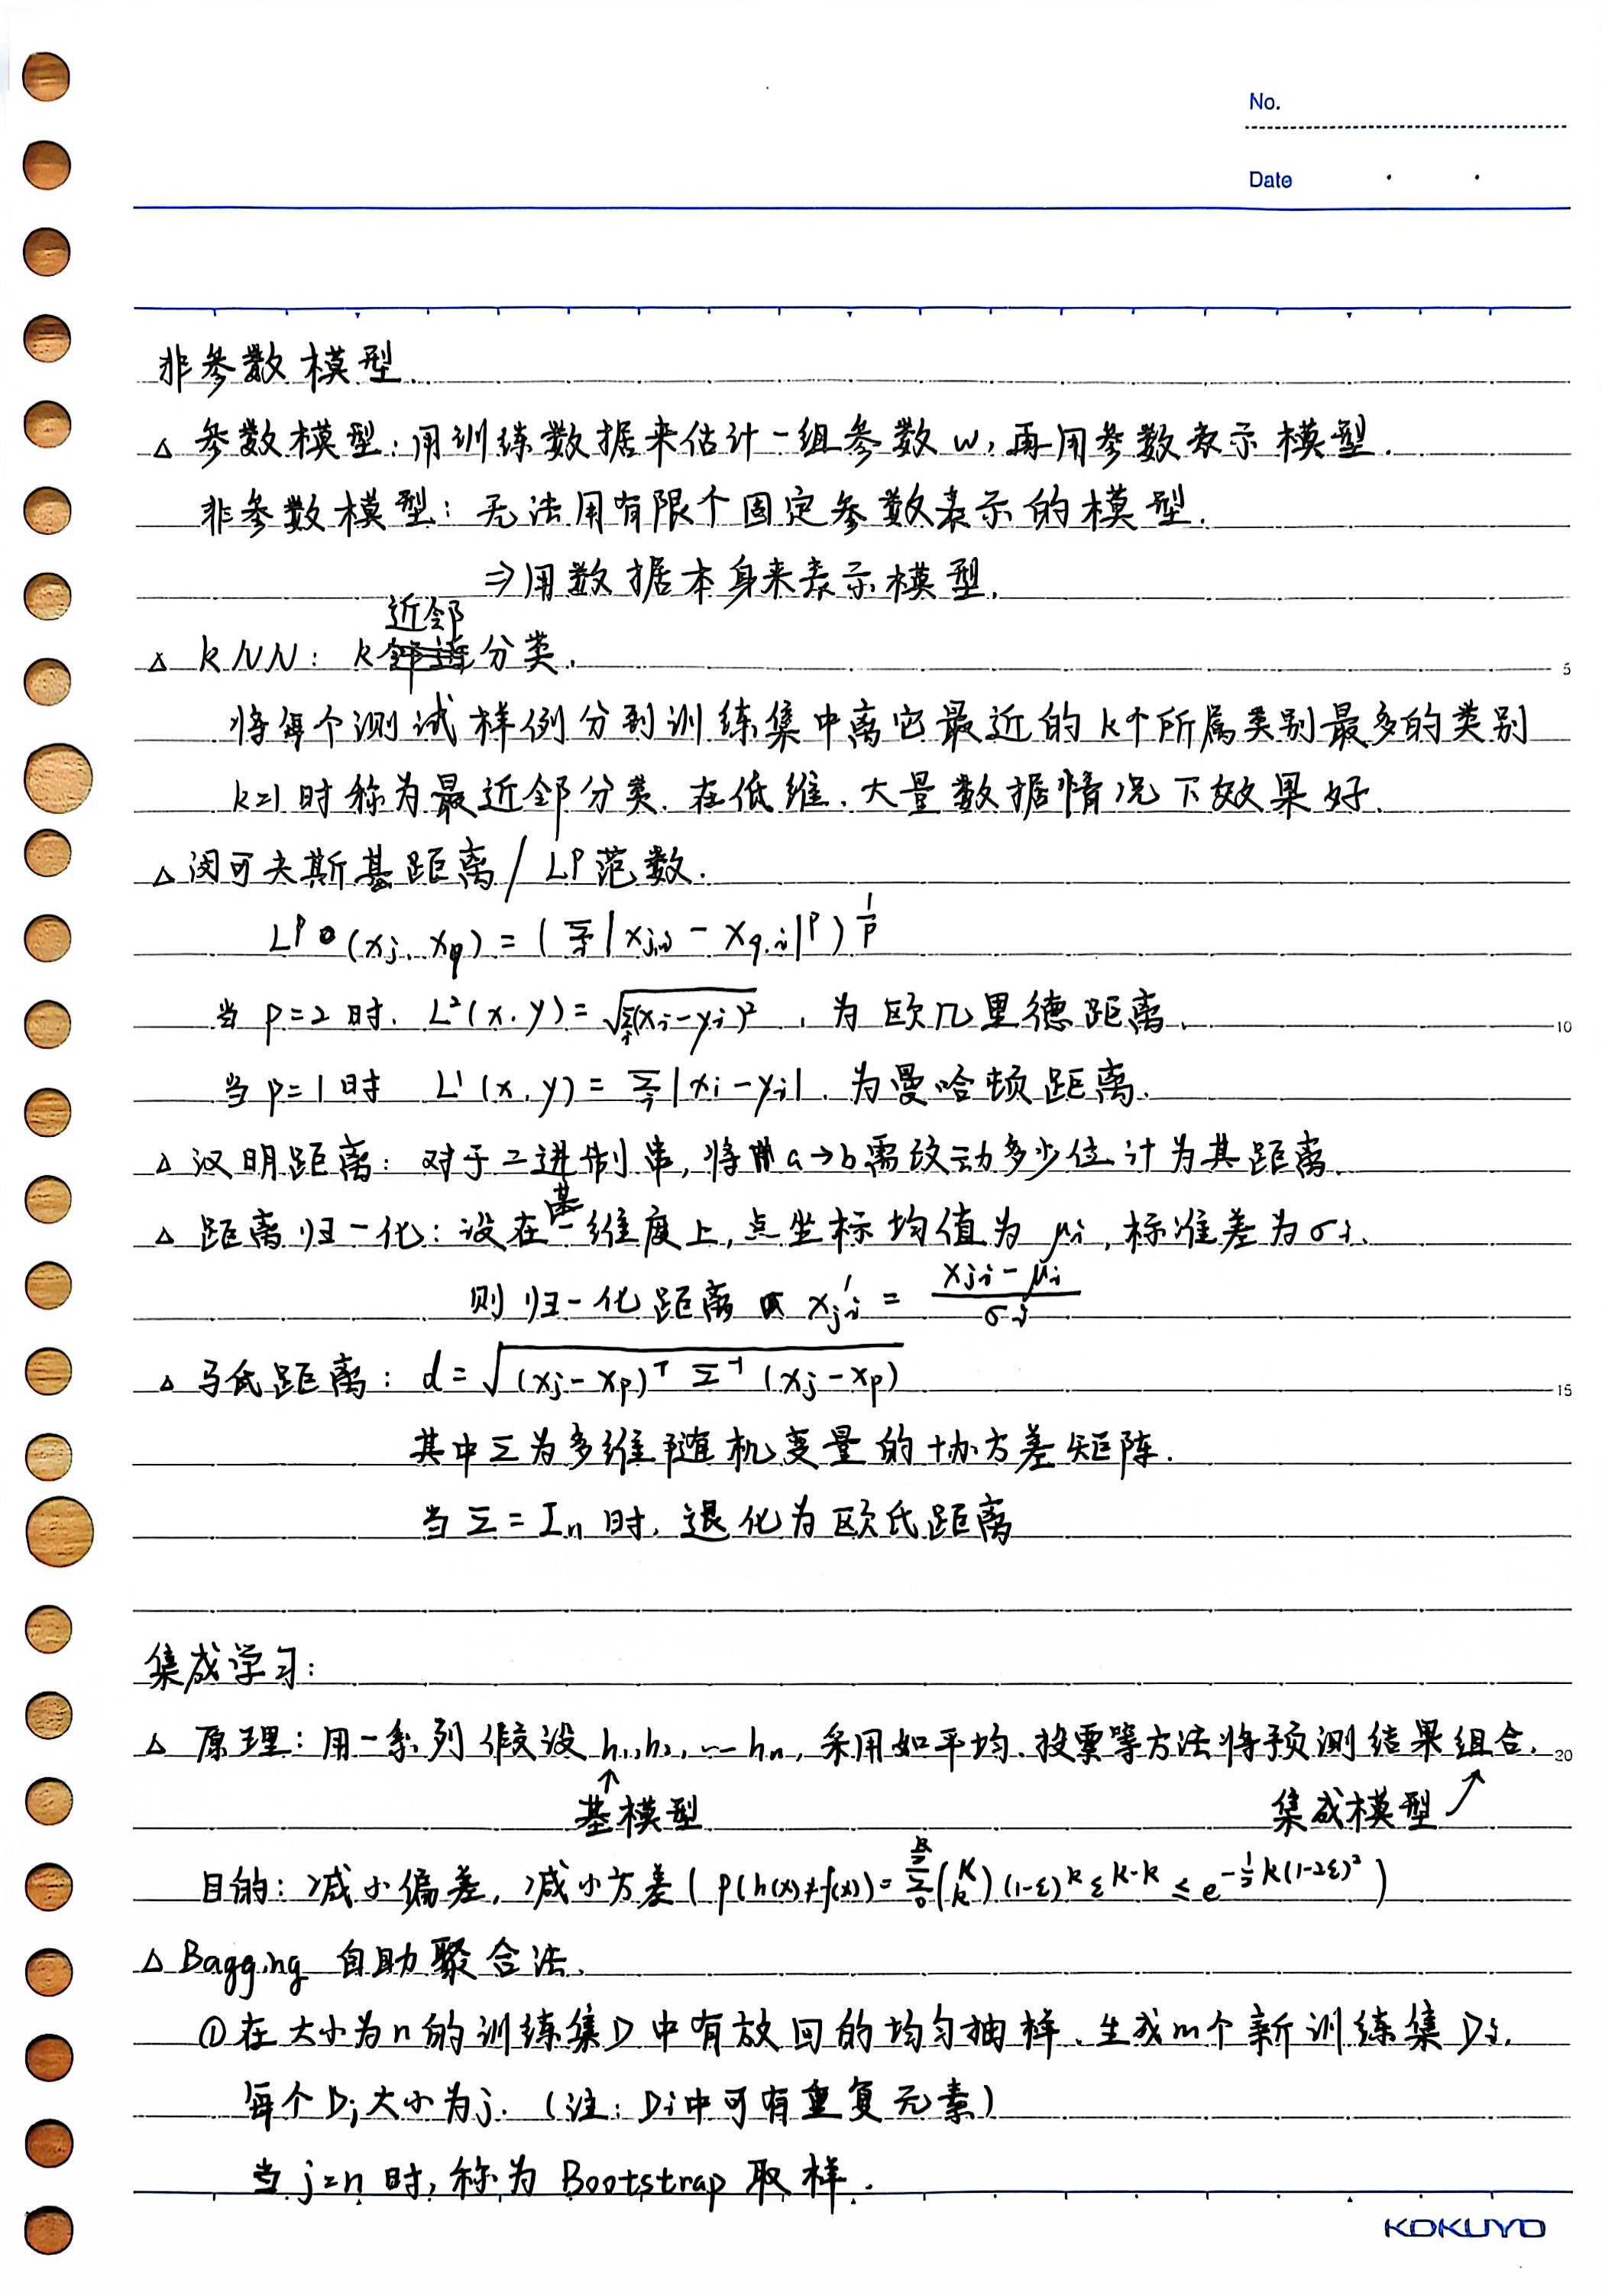 No.
Date
非参数模型.
△ 参数模型：用训练数据来估计一组参数 w, 再用参数表示模型.
非参数模型：无法用有限个固定参数表示的模型.
⇒用数据本身来表示模型.
近邻
△ kNN： k 邻近 分类.
将每个测试样例分到训练集中离它最近的 k个所属类别最多的类别
k=1 时称为最近邻分类. 在低维、大量数据情况下效果好.
5
△ 闵可夫斯基距离 / LP范数.
L^P (xj, xq) = ( Σ_i | xj,i - xq,i |^P )^{1/P}
当 p=2 时. L²(x, y) = √(Σ_i(xi-yi)²) , 为欧几里德距离.
10
当 p=1 时 L¹(x, y) = Σ_i |xi-yi|. 为曼哈顿距离.
△ 汉明距离：对于二进制串, 将 a→b需改动多少位计为其距离.
某
△ 距离归一化：设在一维度上, 点坐标均值为 μi, 标准差为 σi.
则归一化距离 xj,i' = (xji - μi)/σi
△ 马氏距离： d = √((xj-xp)^T Σ^{-1} (xj-xp))
15
其中Σ为多维随机变量的协方差矩阵.
当 Σ = In 时, 退化为欧氏距离
集成学习：
△ 原理：用一系列假设 h1, h2, … hn, 采用如平均、投票等方法将预测结果组合.
20
↑
基模型 集成模型 ↗
目的：减小偏差, 减小方差 ( P(h(x)≠f(x)) = Σ_0 (K k) (1-ε)^k ε^{K-k} ≤ e^{-½K(1-2ε)²} )
△ Bagging 自助聚合法.
① 在大小为n的训练集D中有放回的均匀抽样、生成m个新训练集 Di,
每个 Di大小为j. (注：Di中可有重复元素)
当 j=n 时, 称为 Bootstrap 取样.
KOKUYO